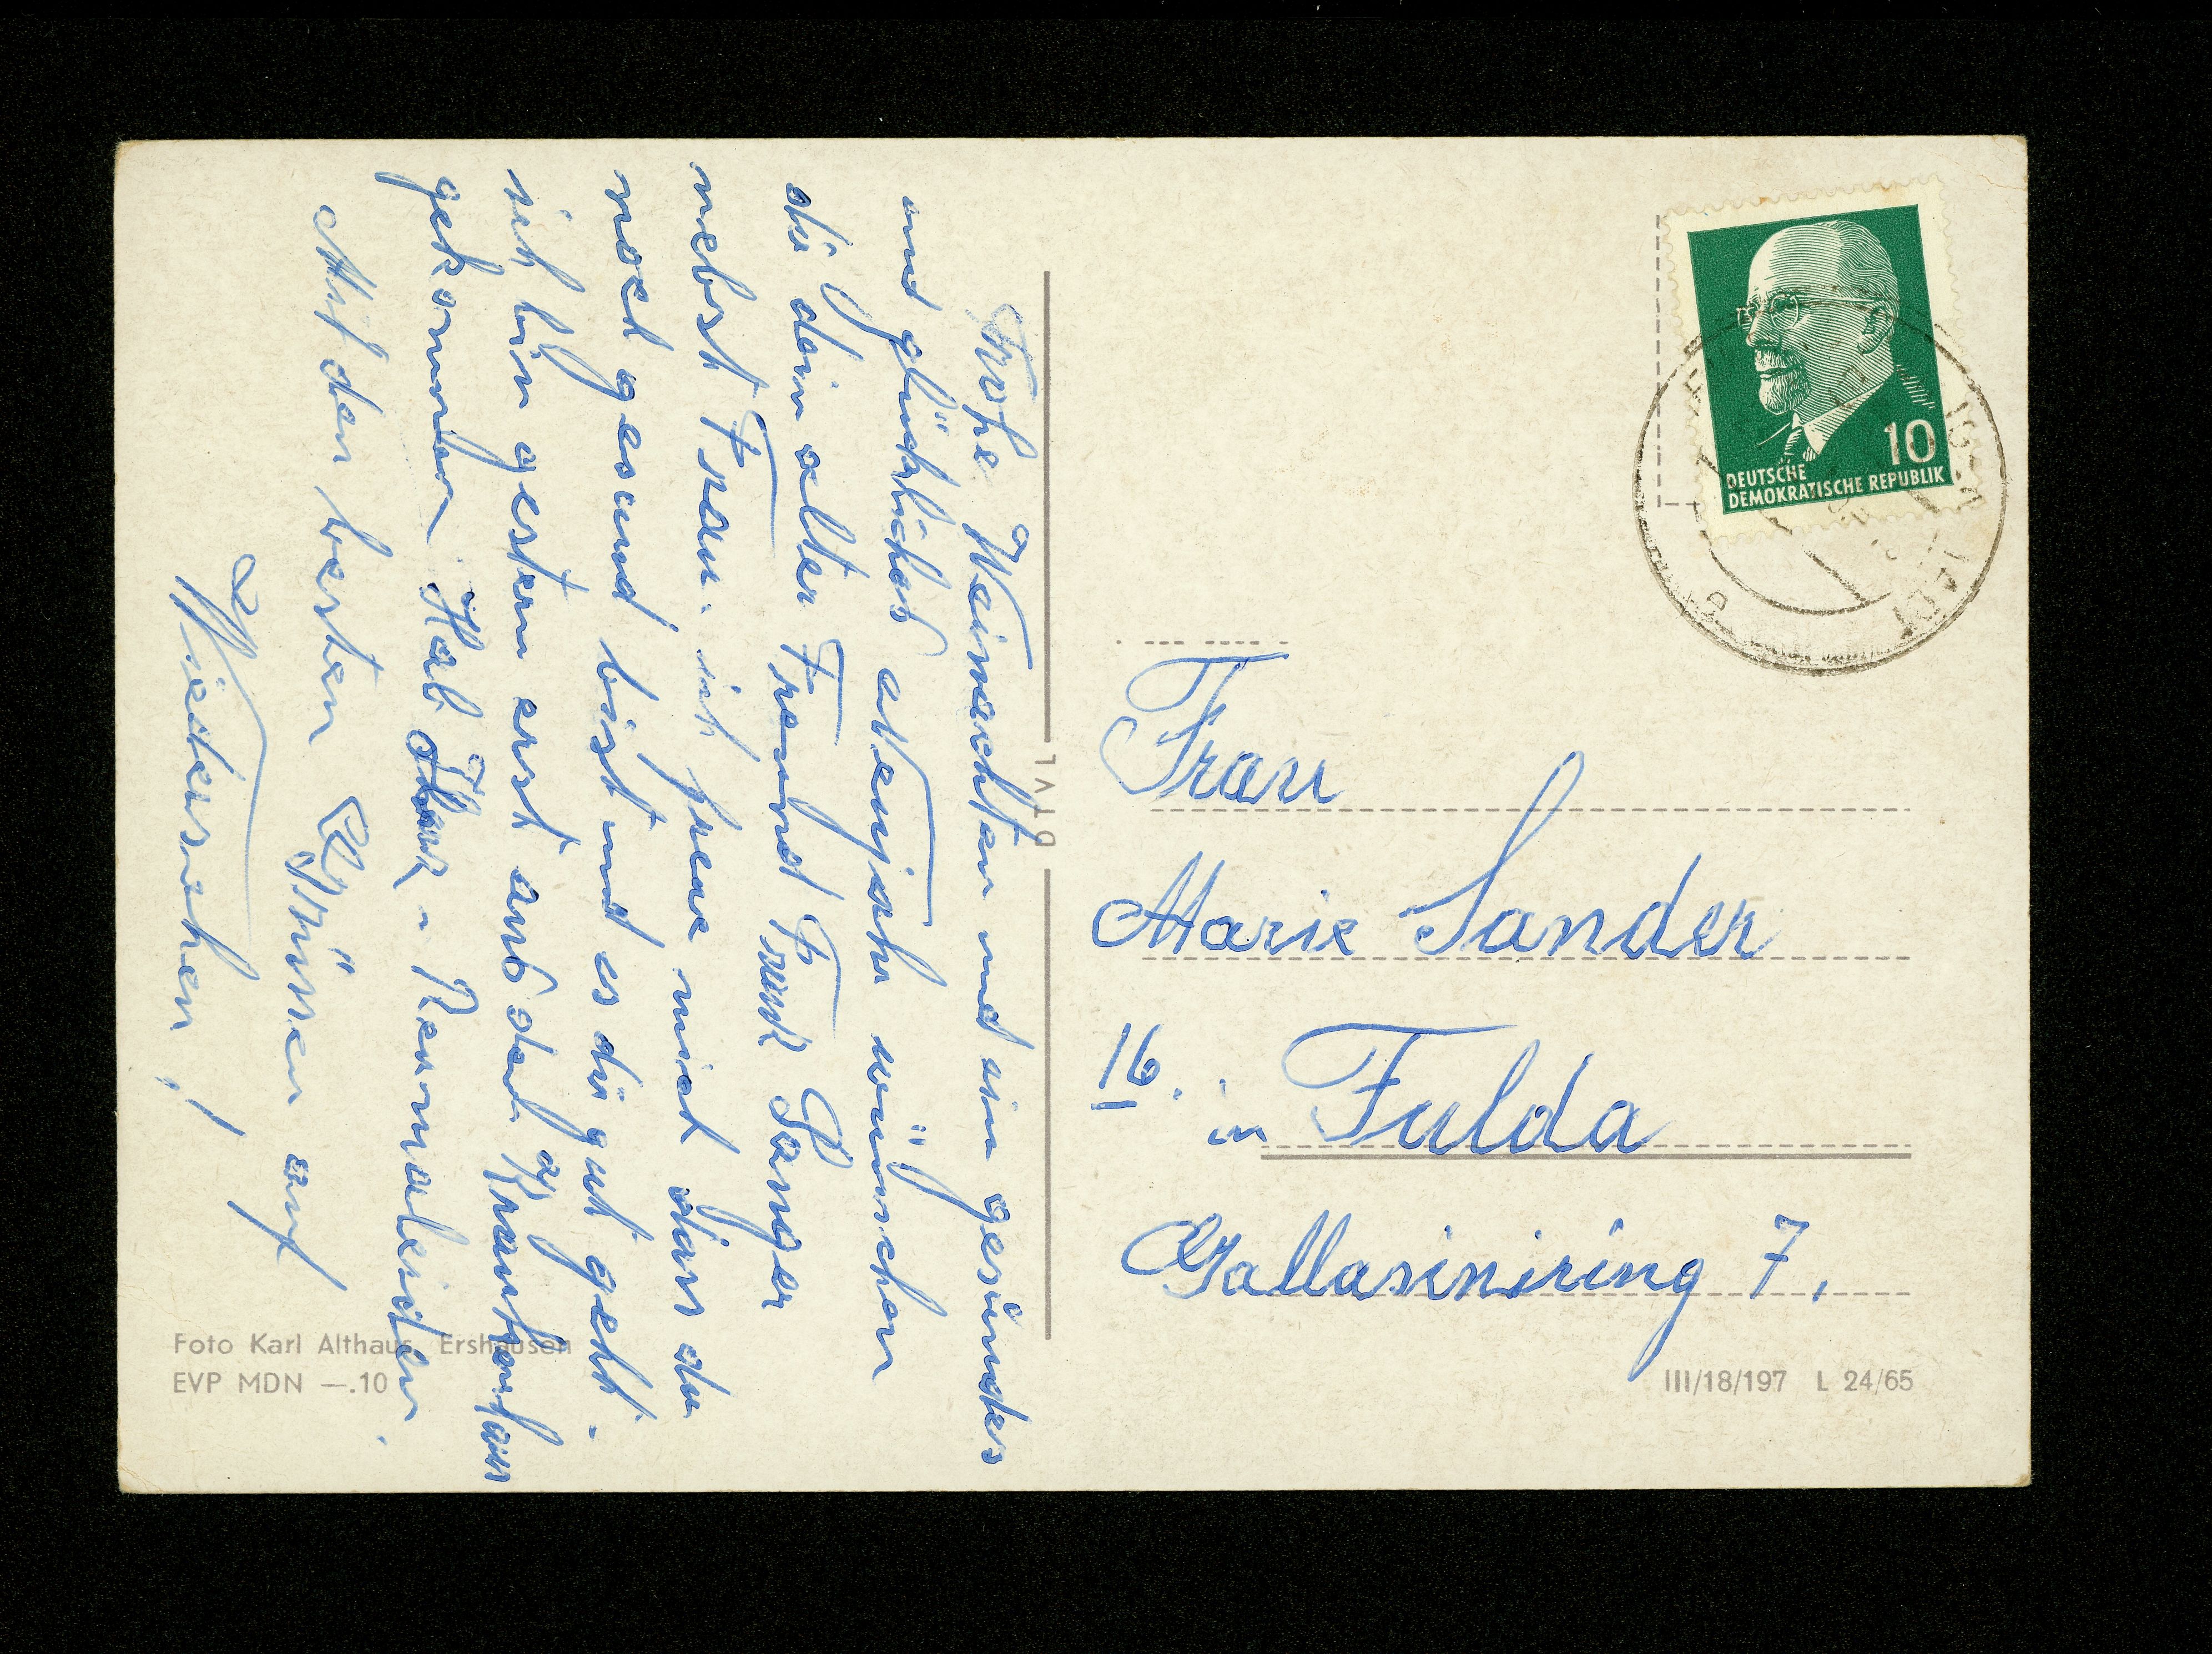 Frohe Weinachten und ein gesundes
und glückliches Neujahr wünschen
dir dein alter Freund Frank Sanger
nebst Frau. ich freue mich dass du
noch gesund bist und es dir gut geht.
ich bin gestern erst aus den Krankenhaus
gekommen Hab Reumaleiden.
Mit den besten Grüssen auf
Wiedersehen!
DEUTSCHE
DEMOKRATISCHE REPUBLIK
10
Frau
Marie Sander
16. in Fulda
Gallasiniring 7.
Foto Karl Althaus, Ershausen
EVP MDN —.10
III/18/197 L 24/65